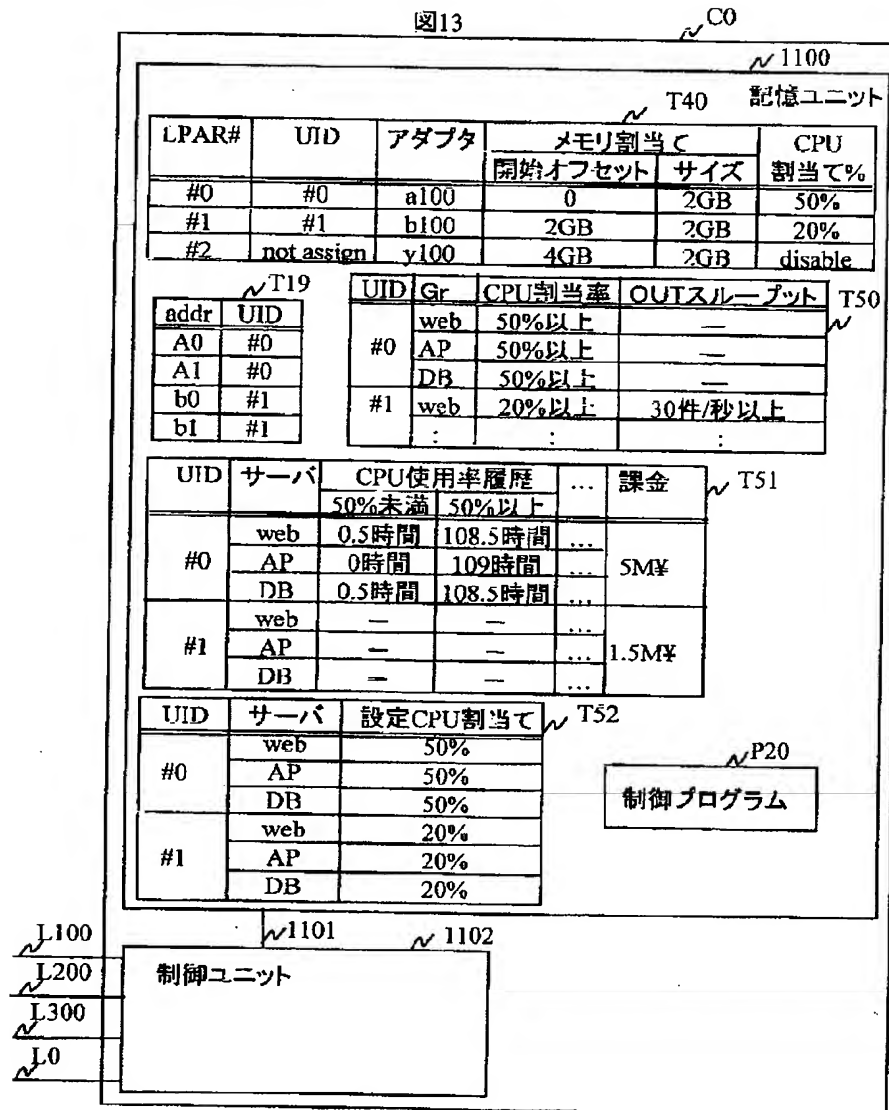 図13
C0
1100
記憶ユニット
T40
LPAR# UID アダプタ メモリ割当て CPU割当て%
開始オフセット サイズ
#0 #0 a100 0 2GB 50%
#1 #1 b100 2GB 2GB 20%
#2 not assign y100 4GB 2GB disable
T19
addr UID
A0 #0
A1 #0
b0 #1
b1 #1
T50
UID Gr CPU割当率 OUTスループット
#0 web 50%以上 —
AP 50%以上 —
DB 50%以上 —
#1 web 20%以上 30件/秒以上
: : :
T51
UID サーバ CPU使用率履歴 … 課金
50%未満 50%以上
#0 web 0.5時間 108.5時間 … 5M¥
AP 0時間 109時間 …
DB 0.5時間 108.5時間 …
#1 web — — … 1.5M¥
AP — — …
DB — — …
T52
UID サーバ 設定CPU割当て
#0 web 50%
AP 50%
DB 50%
#1 web 20%
AP 20%
DB 20%
P20
制御プログラム
1101
1102
制御ユニット
L100
L200
L300
L0